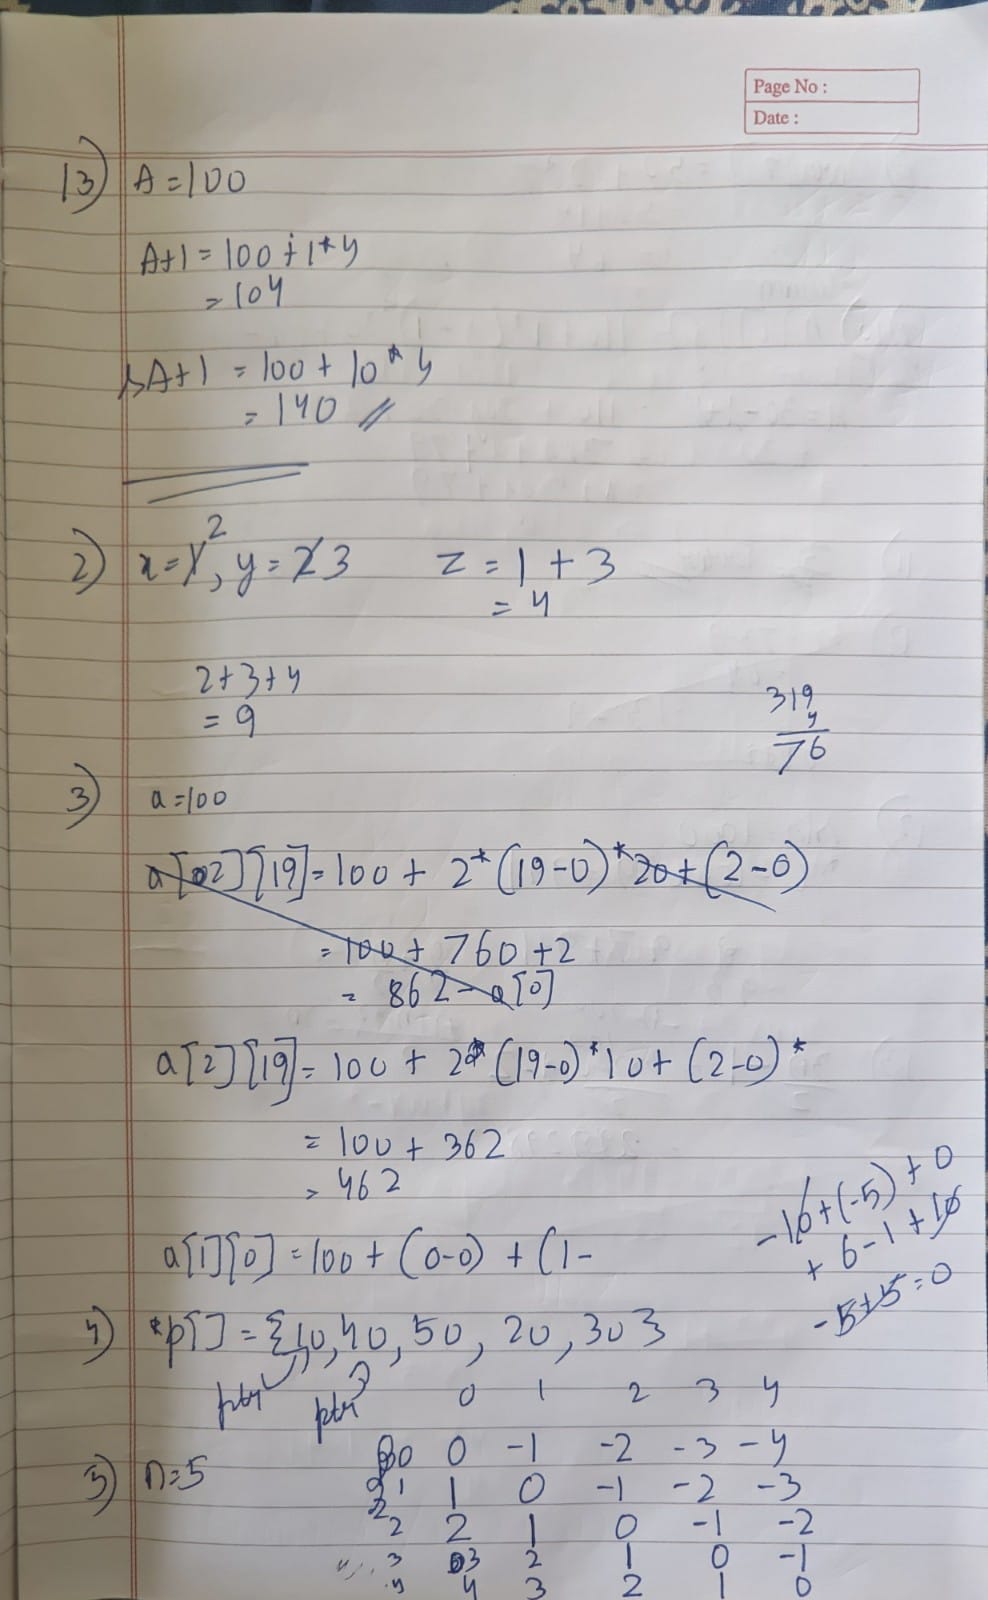 Page No :
Date :
13) A = 100
A+1 = 100 + 1*4
= 104
&A+1 = 100 + 10*4
= 140 //
2) x = 1 2, y = 2 3 z = 1 + 3
= 4
2+3+4
= 9
319
4
76
3) a = 100
a[02][19] = 100 + 2*(19-0)*20+(2-0)
= 100 + 760 + 2
= 862 - a[0]
a[2][19] = 100 + 2*(19-0)*10+(2-0)*
= 100 + 362
= 462
a[1][0] = 100 + (0-0) + (1-
-10+(-5)+0
+6-1+10
-5+5=0
4) *p[] = {10, 40, 50, 20, 30}
ptr ptr
0 1 2 3 4
5) n=5
0 0 -1 -2 -3 -4
1 1 0 -1 -2 -3
2 2 1 0 -1 -2
3 3 2 1 0 -1
4 4 3 2 1 0